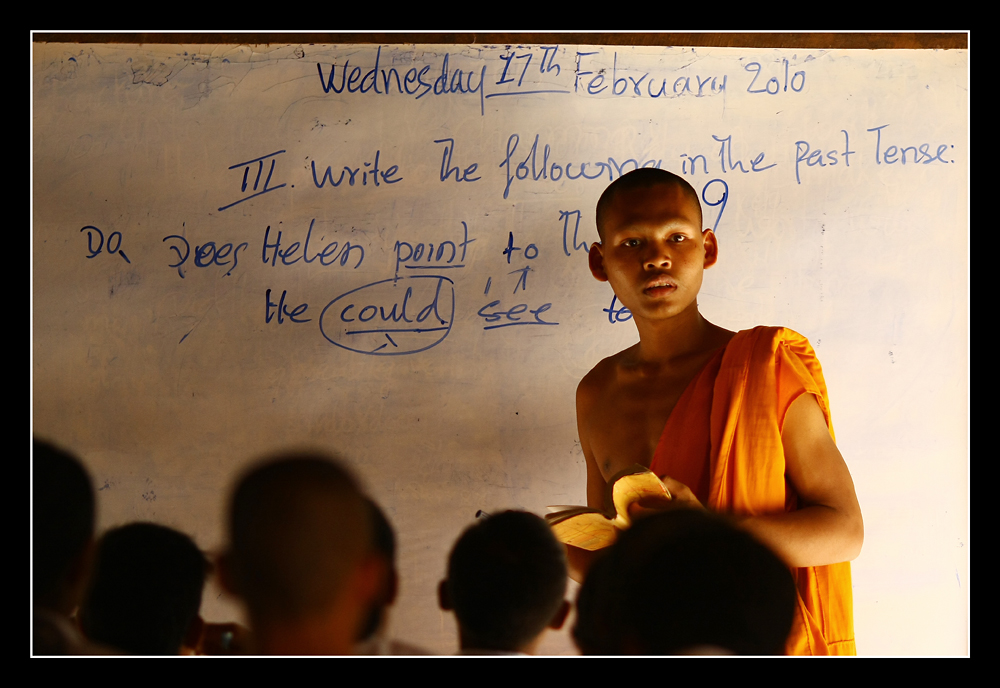 Wednesday 17th February 2010
III. Write The following in The Past Tense:
Do Does Helen point to Th 9
He could see to